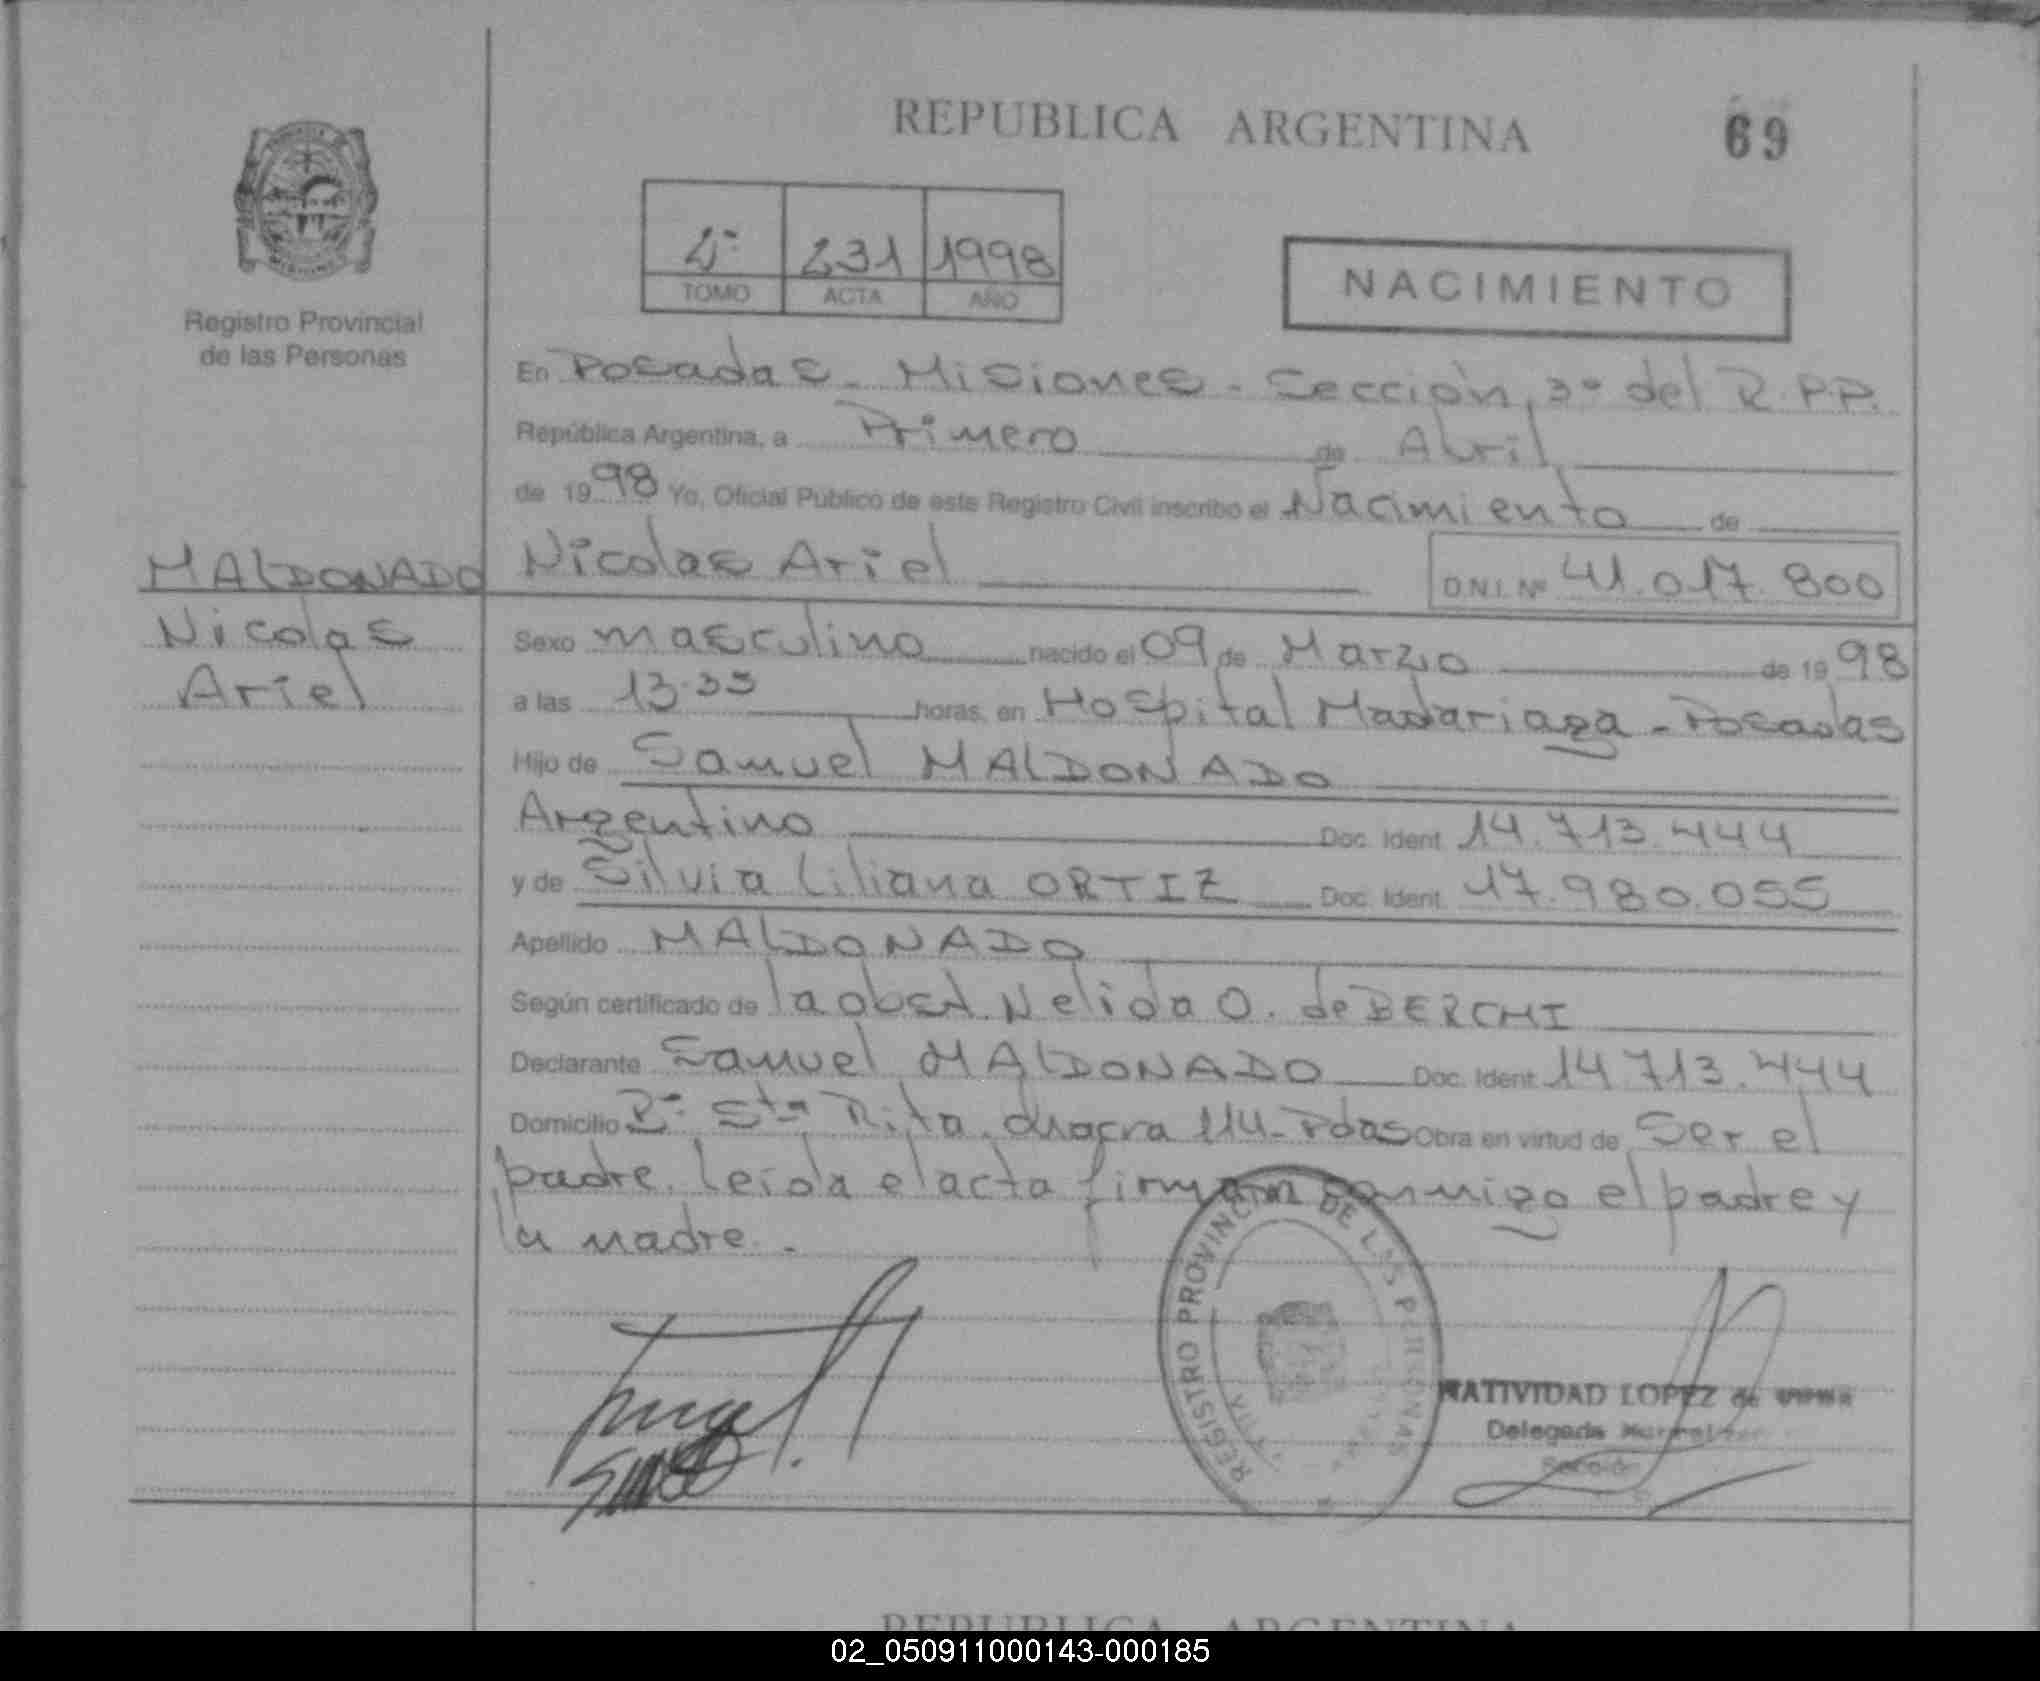 REPUBLICA ARGENTINA
69
Registro Provincial
de las Personas
231 1998
TOMO ACTA AÑO
NACIMIENTO
En Posadas - Misiones - Sección 3º del R.P.P.
República Argentina, a Primero de Abril
de 1998 Yo, Oficial Público de este Registro Civil inscribo el Nacimiento de
MALDONADO Nicolas Ariel D.N.I. Nº 41.017.800
Nicolas
Ariel
Sexo masculino nacido el 09 de Marzo de 1998
a las 13.35 horas, en Hospital Madariaga - Posadas
Hijo de Samuel MALDONADO
Argentino Doc. Ident. 14.713.444
y de Silvia Liliana ORTIZ Doc. Ident. 17.980.055
Apellido MALDONADO
Según certificado de la obst. Nelida O. de BERCHI
Declarante Samuel MALDONADO Doc. Ident. 14.713.444
Domicilio Bº Sta Rita, chacra 114 - Pdas Obra en virtud de Ser el
padre. Leida el acta firman conmigo el padre y
la madre.
REGISTRO PROVINCIAL DE LAS PERSONAS
NATIVIDAD LOPEZ de
Delegada
Sección
REPUBLICA ARGENTINA
02_050911000143-000185